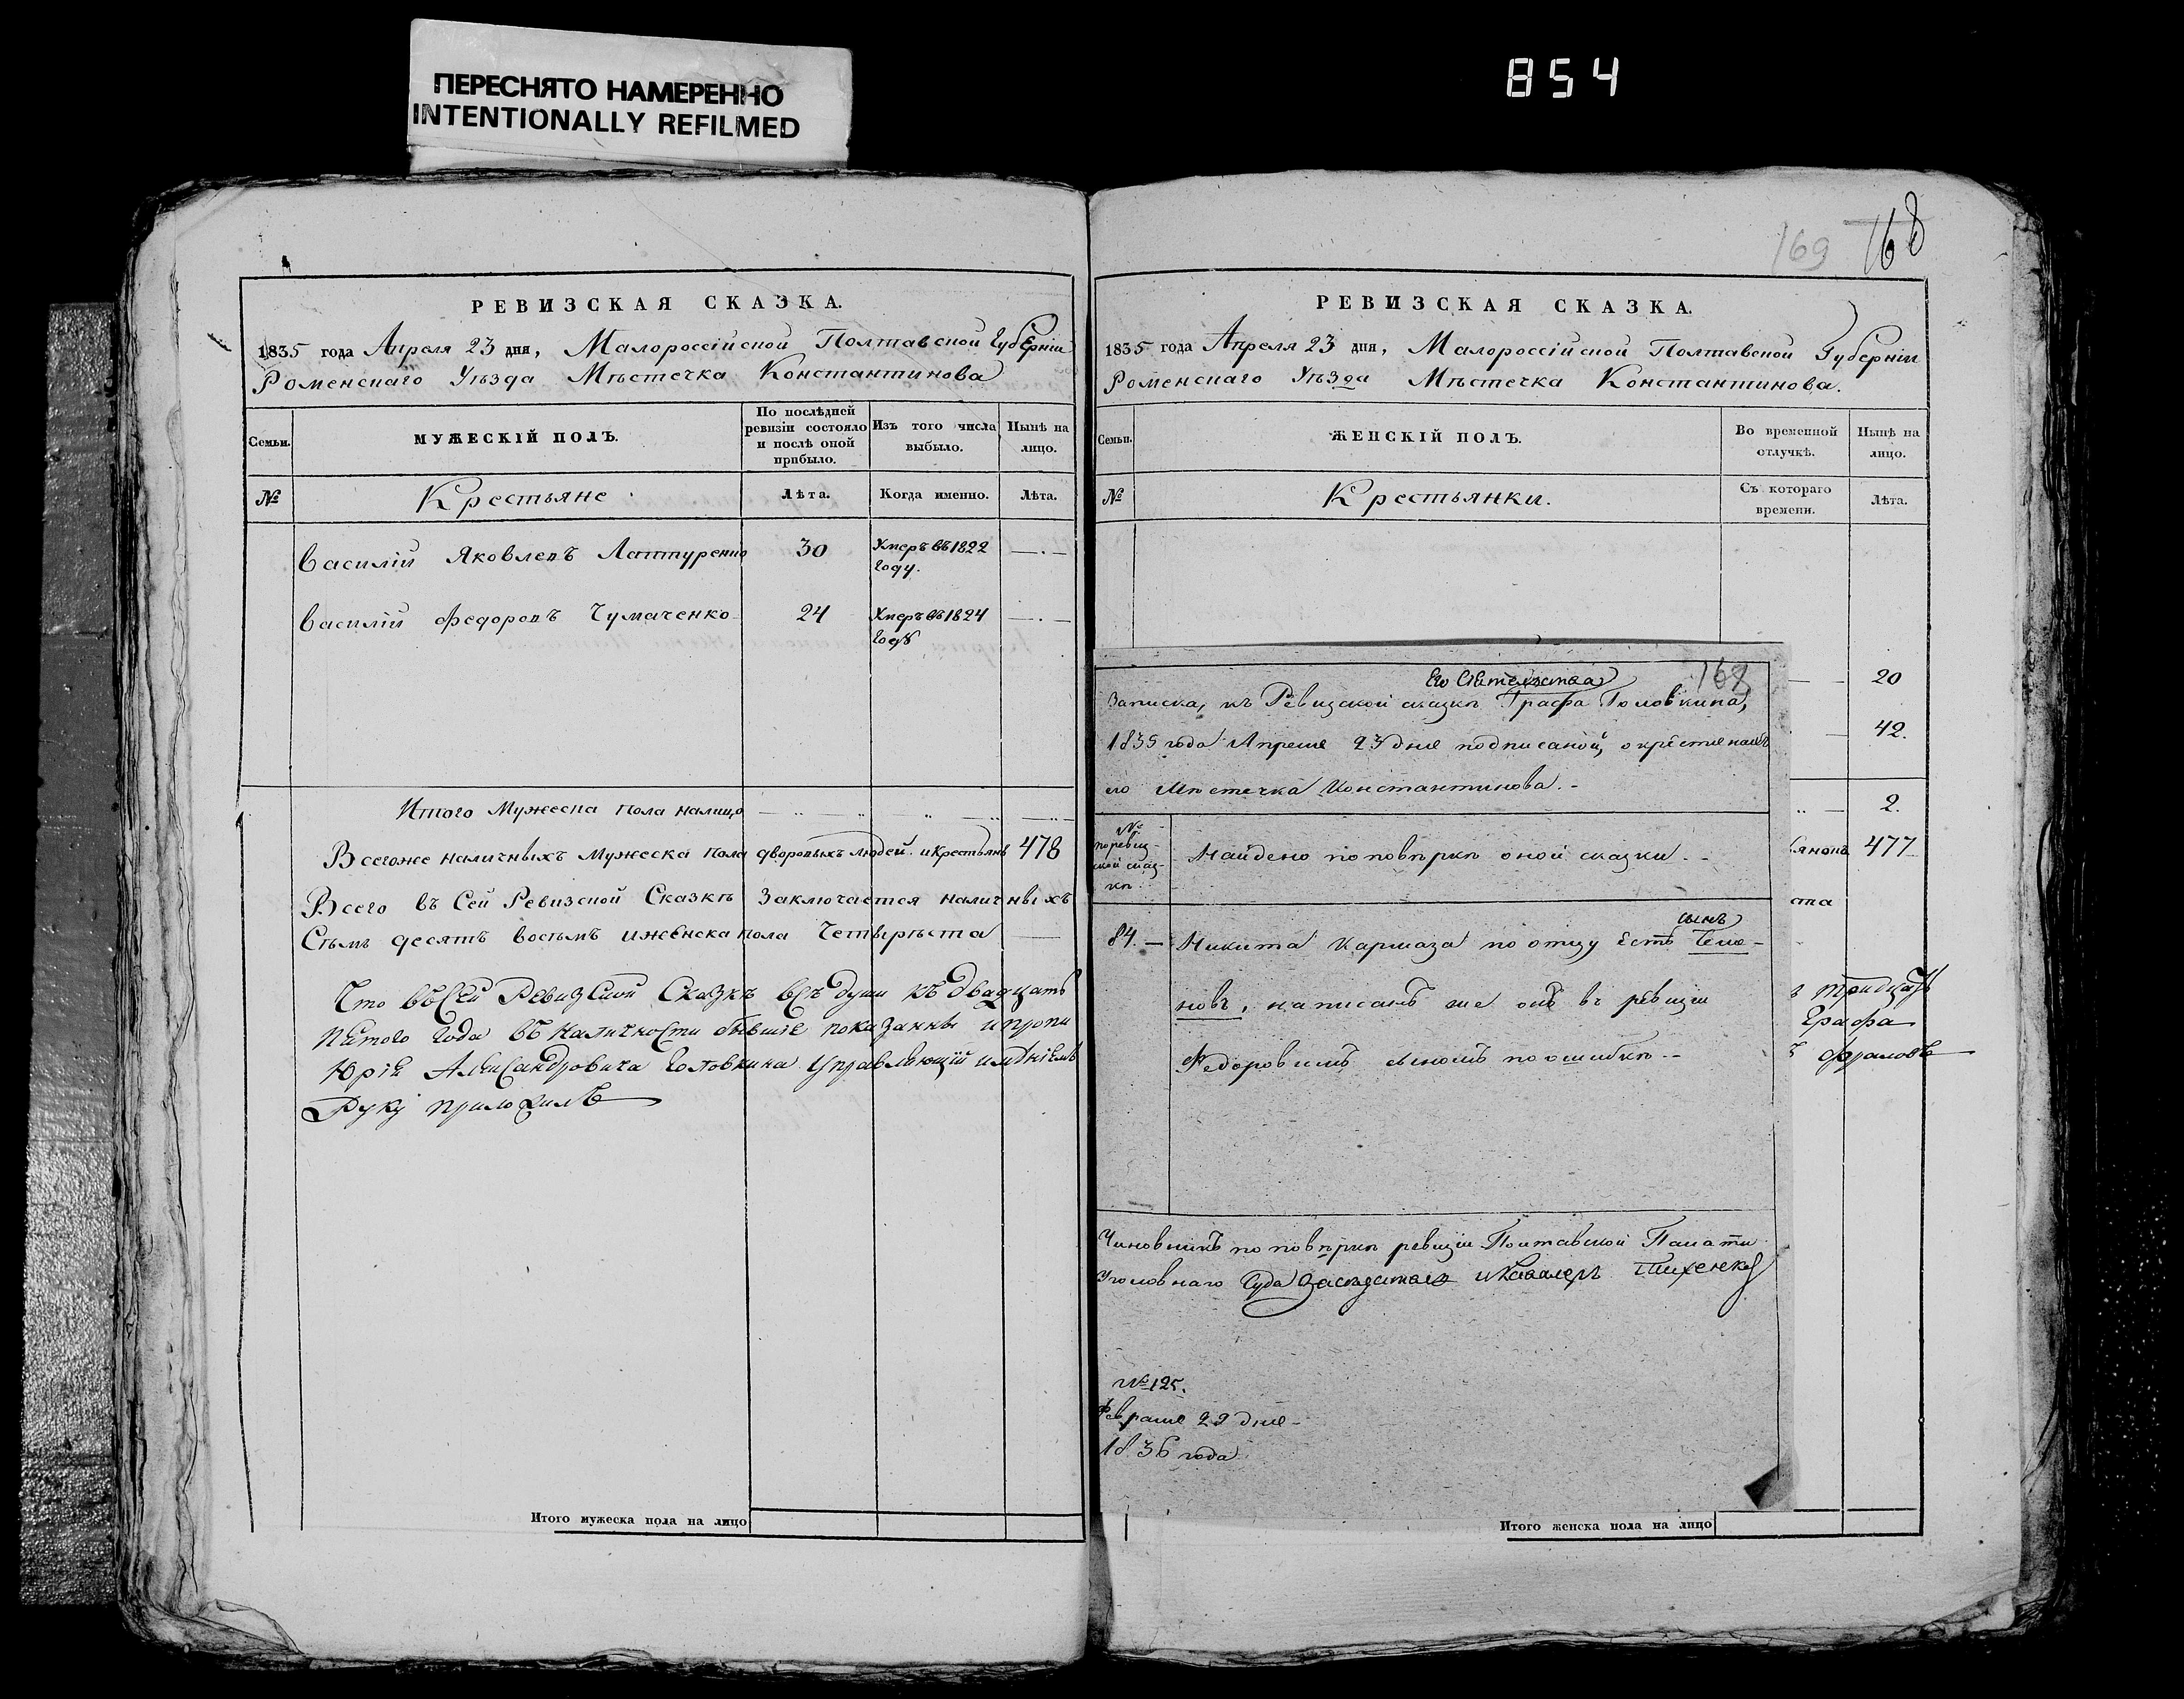 ПЕРЕСНЯТО НАМЕРЕННО
INTENTIONALLY REFILMED
854
РЕВИЗСКАЯ СКАЗКА.
1835 года Апреля 23 дня, Малороссійской Полтавской Губерніи
Роменскаго Уѣзда Мѣстечка Константинова
Семьи.
МУЖЕСКІЙ ПОЛЪ.
По послѣдней ревизіи состояло и послѣ оной прибыло.
Изъ того числа выбыло.
Нынѣ на лицо.
№ Крестьяне Лѣта. Когда именно. Лѣта.
Василий Яковлевъ 30 Умеръ въ 1822
году.
Василий Федоровъ Чумаченко 24 Умеръ въ 1824
году
Итого Мужеска пола налицо
Всегоже наличныхъ Мужеска пола дворовыхъ людей и крестьянъ 478
Всего въ Сей Ревизской Сказкѣ Заключается наличныхъ
Семь десятъ восемь и женска пола Четыреста
Что въ Сей Ревизской Сказкѣ всѣ души къ двадцать
пятого года въ наличности бывшіе показанны и пропи
Юрія Александровича Головкина Управляющій имѣніемъ
Руку приложилъ
Итого мужеска пола на лицо
169 168
РЕВИЗСКАЯ СКАЗКА.
1835 года Апреля 23 дня, Малороссійской Полтавской Губерніи
Роменскаго Уѣзда Мѣстечка Константинова.
Семьи.
ЖЕНСКІЙ ПОЛЪ.
Во временной отлучкѣ.
Нынѣ на лицо.
№ Крестьянки. Съ котораго времени. Лѣта.
20
42.
2.
477
ста
тридцать
Графа
168
Его Сіятельства
Записка, къ Ревизской сказкѣ Графа Головкина,
1835 года Апреля 23 дня подписаной, о крестьянахъ
его Мѣстечка Константинова.-
№ по ревизской сказкѣ
Найдено по повѣркѣ оной сказки.-
сынъ
84.- Никита Кармаза по отцу есть
новъ, написанъ же онъ въ ревизіи
Федоровымъ сыномъ по ошибкѣ.-
Чиновникъ по повѣркѣ ревизіи Полтавской Палаты
Уголовнаго Суда Засѣдатель и Кавалеръ
№ 125.
Февраля 29 дня-
1836 года
Итого женска пола на лицо